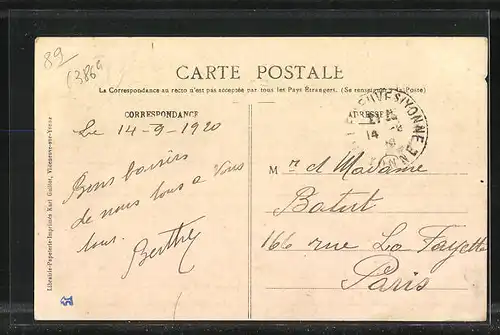 89
(3869
CARTE POSTALE
La Correspondance au recto n'est pas acceptée par tous les Pays Étrangers. (Se renseigner à la Poste)
CORRESPONDANCE
ADRESSE
Le 14-9-1920
Bons baisers
de nous tous a vous
tous.
Berthe
Mr et Madame
Batut
166 rue La Fayette
Paris
YONNE
14
Librairie-Papeterie-Imprimée Karl Guillot, Villeneuve-sur-Yonne